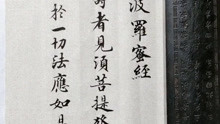 波羅蜜經
壽者見須菩提發
於一切法應如是